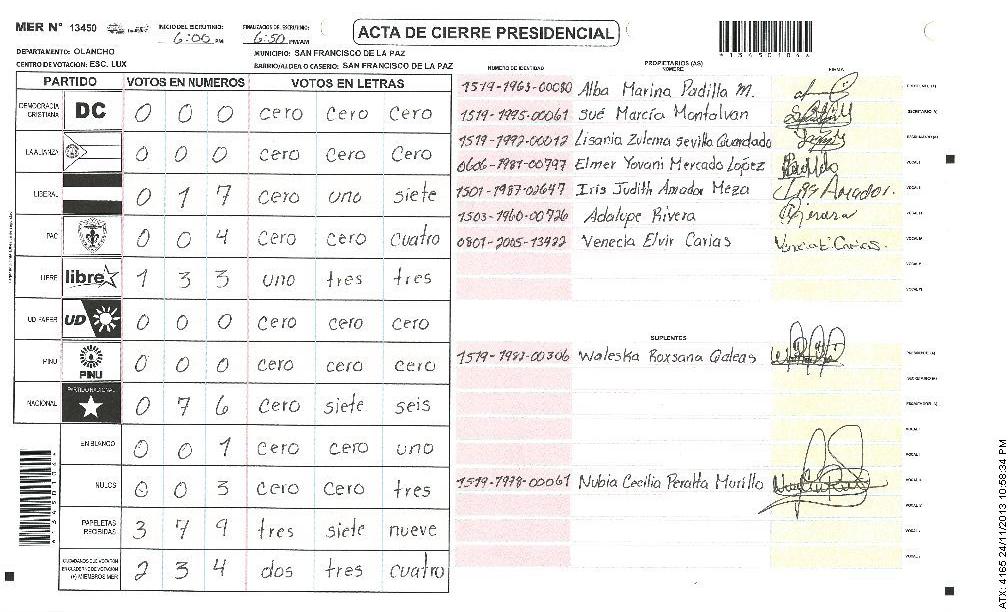 MER N° 13450 INICIO DEL ESCRUTINIO: 6:00 PM FINALIZACION DEL ESCRUTINIO: 6:50 PM/AM
ACTA DE CIERRE PRESIDENCIAL
DEPARTAMENTO: OLANCHO MUNICIPIO: SAN FRANCISCO DE LA PAZ
CENTRO DE VOTACION: ESC. LUX BARRIO/ALDEA/O CASERIO: SAN FRANCISCO DE LA PAZ
PARTIDO VOTOS EN NUMEROS VOTOS EN LETRAS
DEMOCRACIA CRISTIANA DC 0 0 0 cero cero cero
LA ALIANZA 0 0 0 cero cero Cero
LIBERAL 0 1 7 cero uno siete
PAC 0 0 4 cero cero cuatro
LIBRE libre 1 3 3 uno tres tres
UD FAPER UD 0 0 0 cero cero cero
PINU PINU 0 0 0 cero cero cero
NACIONAL PARTIDO NACIONAL 0 7 6 cero siete seis
EN BLANCO 0 0 1 cero cero uno
NULOS 0 0 3 cero cero tres
PAPELETAS RECIBIDAS 3 7 9 tres siete nueve
CIUDADANOS QUE VOTARON EN CUADERNO DE VOTACION (+) MIEMBROS MER 2 3 4 dos tres cuatro
PROPIETARIOS (AS)
NUMERO DE IDENTIDAD NOMBRE FIRMA
1519-1963-00080 Alba Marina Padilla M.
1519-1995-00061 Sué Marcía Montalvan
1519-1992-00012 Lisania Zulema sevilla Guandado
0606-1981-00797 Elmer Yovani Mercado López
1501-1987-02647 Iris Judith Amador Meza
1503-1960-00726 Adalupe Rivera
0801-2005-13422 Venecia Elvir Carias
SUPLENTES
1519-1982-00306 Waleska Roxsana Galeas
1519-1978-00061 Nubia Cecilia Peralta Murillo
ATX: 4165 24/11/2013 10:58:34 PM